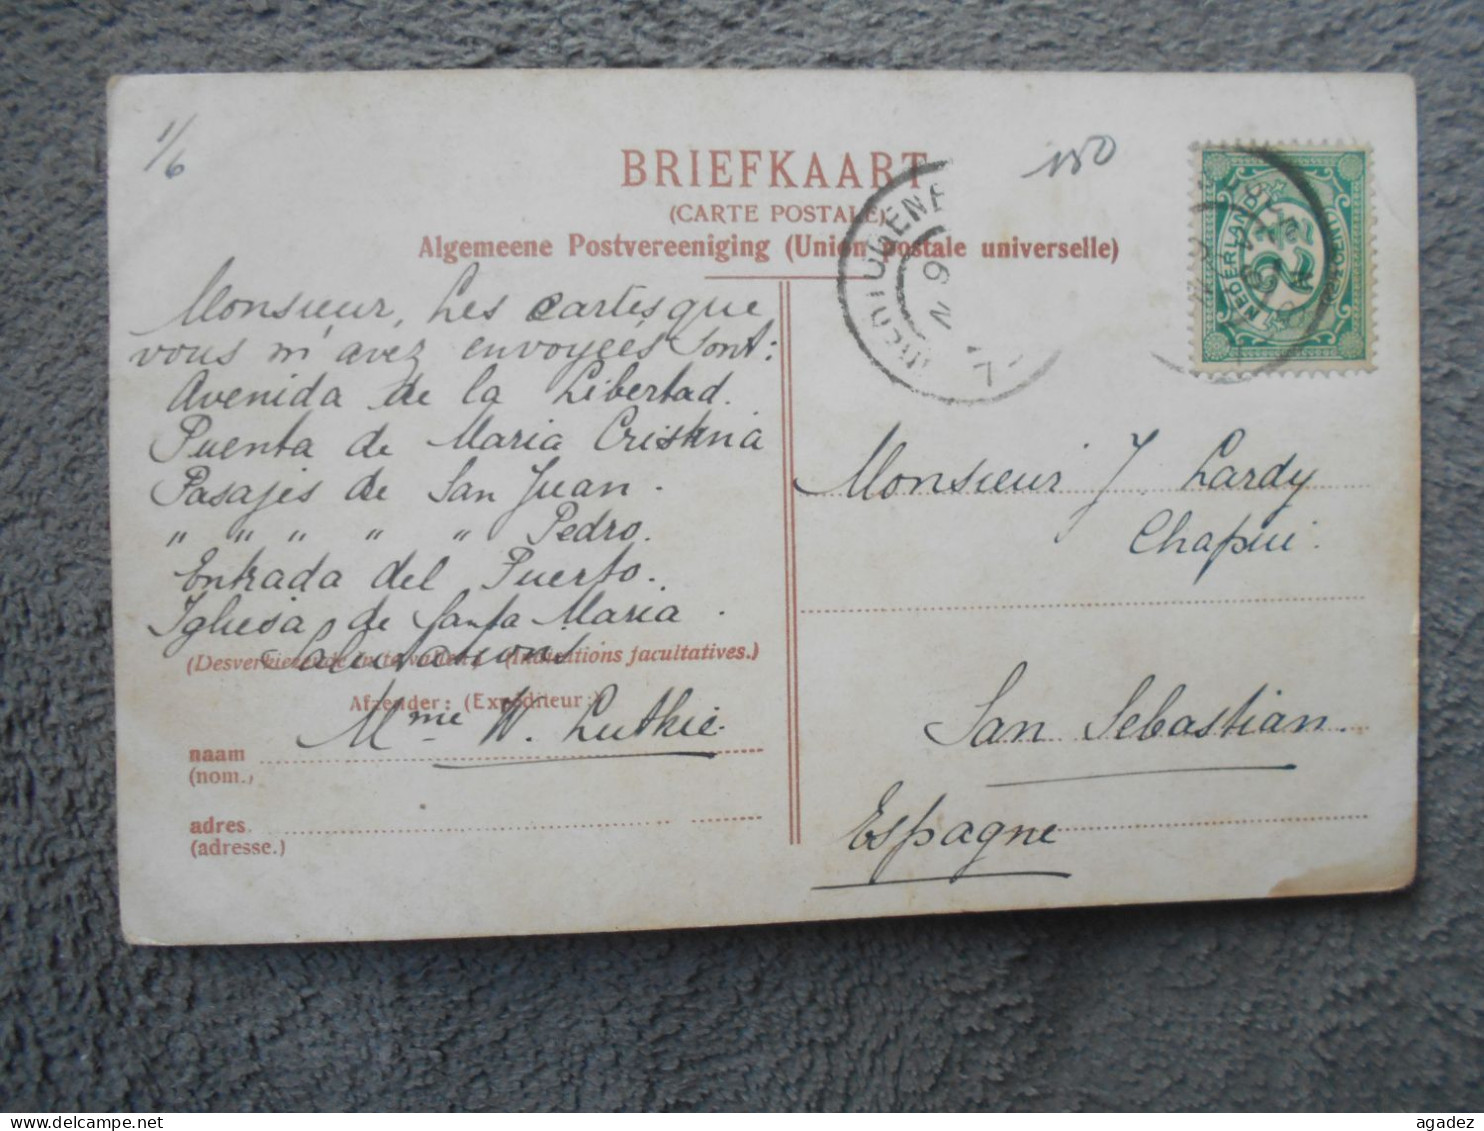 1/6
150
BRIEFKAART
(CARTE POSTALE)
Algemeene Postvereeniging (Union postale universelle)
NEDERLAND
2½
Monsieur, Les cartes que
vous m'avez envoyées sont:
Avenida de la Libertad.
Puenta de Maria Cristina
Pasajes de San Juan.
" " " " " Pedro.
Entrada del Puerto.
Iglesia de Santa Maria.
Salutations
(Indications facultatives.)
Afzender: (Expéditeur:)
Mme W. Luthie.
naam
(nom.)
adres.
(adresse.)
Monsieur J. Lardy
Chapui.
San Sebastian.
Espagne
agadez